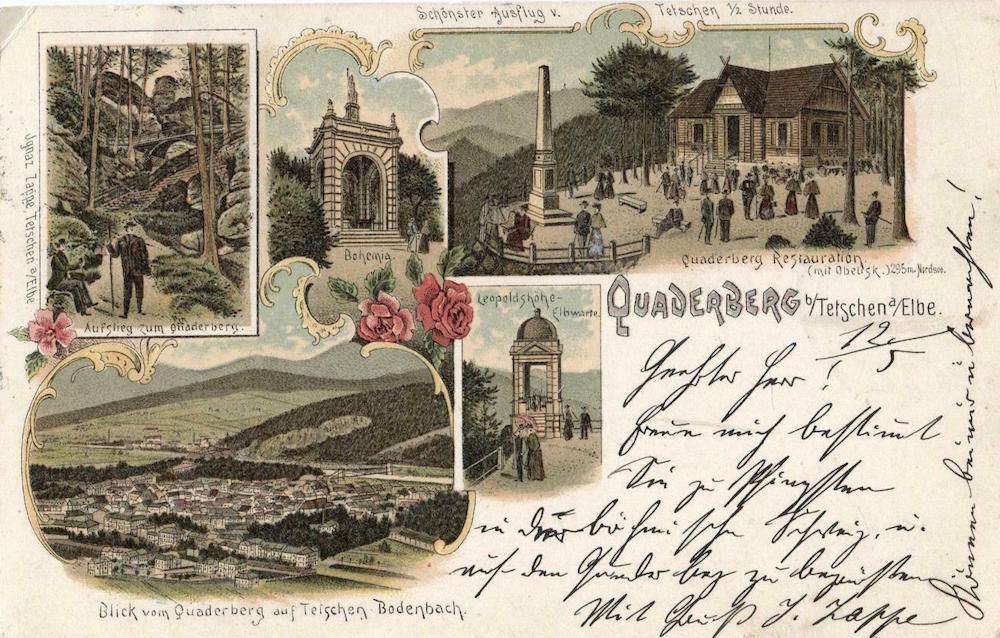 Schönster Ausflug v. Tetschen 1/2 Stunde.
Ignaz Zappe, Tetschen a/Elbe
Aufstieg zum Quaderberg.
Bohemia.
Quaderberg Restauration.
(mit Obelisk.) 295m. Nordsee.
Leopoldshöhe-
Elbwarte.
QUADERBERG b/Tetschen a/Elbe.
Blick vom Quaderberg auf Tetschen-Bodenbach.
12/5
Geehrter Herr!
freue mich bestimt
Sie zu Pfingsten
in der böhmischen Schweiz, u.
auf dem Quaderberg zu begrüßen
Mit Gruß J. Zappe
Können bei mir u